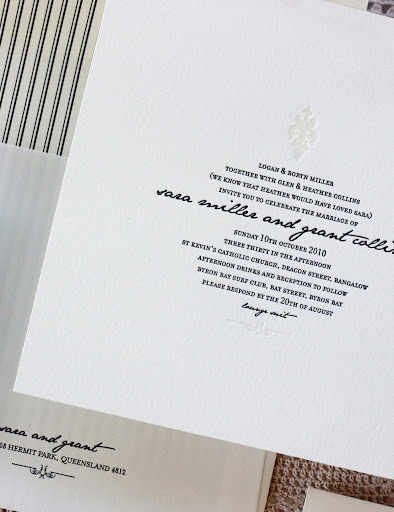 LOGAN & ROBYN MILLER
TOGETHER WITH GLEN & HEATHER COLLINS
(WE KNOW THAT HEATHER WOULD HAVE LOVED SARA)
INVITE YOU TO CELEBRATE THE MARRIAGE OF
sara miller and grant collins
SUNDAY 10TH OCTOBER 2010
THREE THIRTY IN THE AFTERNOON
ST KEVIN'S CATHOLIC CHURCH, DEACON STREET, BANGALOW
AFTERNOON DRINKS AND RECEPTION TO FOLLOW
BYRON BAY SURF CLUB, BAY STREET, BYRON BAY
PLEASE RESPOND BY THE 20TH OF AUGUST
lounge suit
sara and grant
HERMIT PARK, QUEENSLAND 4812